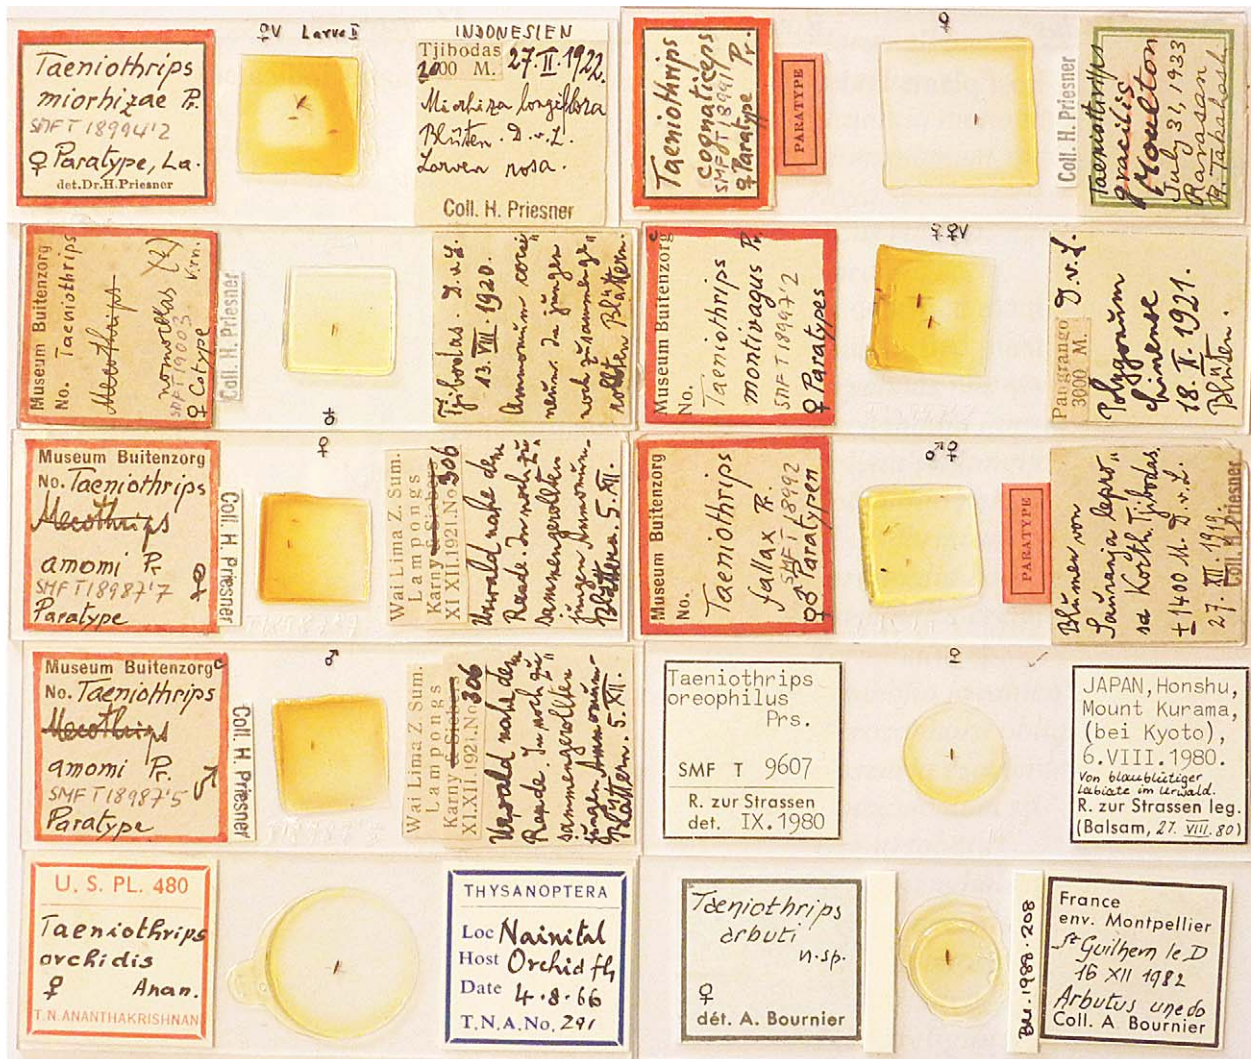 Taeniothrips
miorhizae Pr.
SMF T 18994'2
♀ Paratype, La.
det.Dr.H.Priesner
♀V Larve II
INDONESIEN
Tjibodas 27.II.1922.
2000 M.
Miorhiza longiflora
Blüten. D.v.L.
Larven rosa.
Coll. H. Priesner
Taeniothrips
cognaticeps
SMF T 18991
♀ Paratype Pr.
PARATYPE
♀
Coll. H. Priesner
Taeniothrips
gracilis
Moulton
July 31, 1933
Rarasan
R. Takahashi
Museum Buitenzorg
No. Taeniothrips
Mecothrips
SMF T 19003
♀ Cotype
Coll. H. Priesner
♀
Tjibodas. D.v.L.
13.VIII.1920.
Ammomum
In jungen
noch zusammenge"
rollten Blättern.
Museum Buitenzorg
No.
Taeniothrips
montivagus Pr.
SMF T 18997'2
♀ Paratypes
♀♀V
Pangrango D.v.L.
3000 M.
Polygonum
chinense
18.I.1921.
Blüten.
Museum Buitenzorg
No. Taeniothrips
Mecothrips
amomi Pr.
SMF T 18987'7 ♀
Paratype
Coll. H. Priesner
♀
Wai Lima Z. Sum.
Lampongs
Karny & Siebers
XI XII.1921.No 306
Urwald nahe dem
In noch zu"
sammengerollten
jungen Ammomum-
Blättern. 5.XII.
Museum Buitenzorg
No.
Taeniothrips
fallax Pr.
SMF T 18992
♀♂ Paratypen
♀♂
PARATYPE
Blumen von
Sauranja lepro"
sa Korth. Tjibodas.
± 1400 M. D.v.L.
27.XII.1919.
Coll. H. Priesner
Museum Buitenzorg
No. Taeniothrips
Mecothrips
amomi Pr.
SMF T 18987'5 ♂
Paratype
Coll. H. Priesner
♂
Wai Lima Z. Sum.
Lampongs
Karny & Siebers
XI.XII.1921.No 306
Urwald nahe dem
In noch zu"
sammengerollten
jungen Ammomum-
Blättern. 5.XII.
Taeniothrips
oreophilus
Prs.
SMF T 9607
R. zur Strassen
det. IX.1980
♀
JAPAN, Honshu,
Mount Kurama,
(bei Kyoto),
6.VIII.1980.
Von blaublütiger
Labiate im Urwald.
R. zur Strassen leg.
(Balsam, 27.VIII.80)
U. S. PL. 480
Taeniothrips
orchidis
♀ Anan.
T.N.ANANTHAKRISHNAN
THYSANOPTERA
Loc Nainital
Host Orchid fl
Date 4.8.66
T.N.A.No. 291
Taeniothrips
arbuti
n.sp.
♀
dét. A. Bournier
BRI.1988.208
France
env. Montpellier
St Guilhem le D
16 XII 1982
Arbutus unedo
Coll. A Bournier